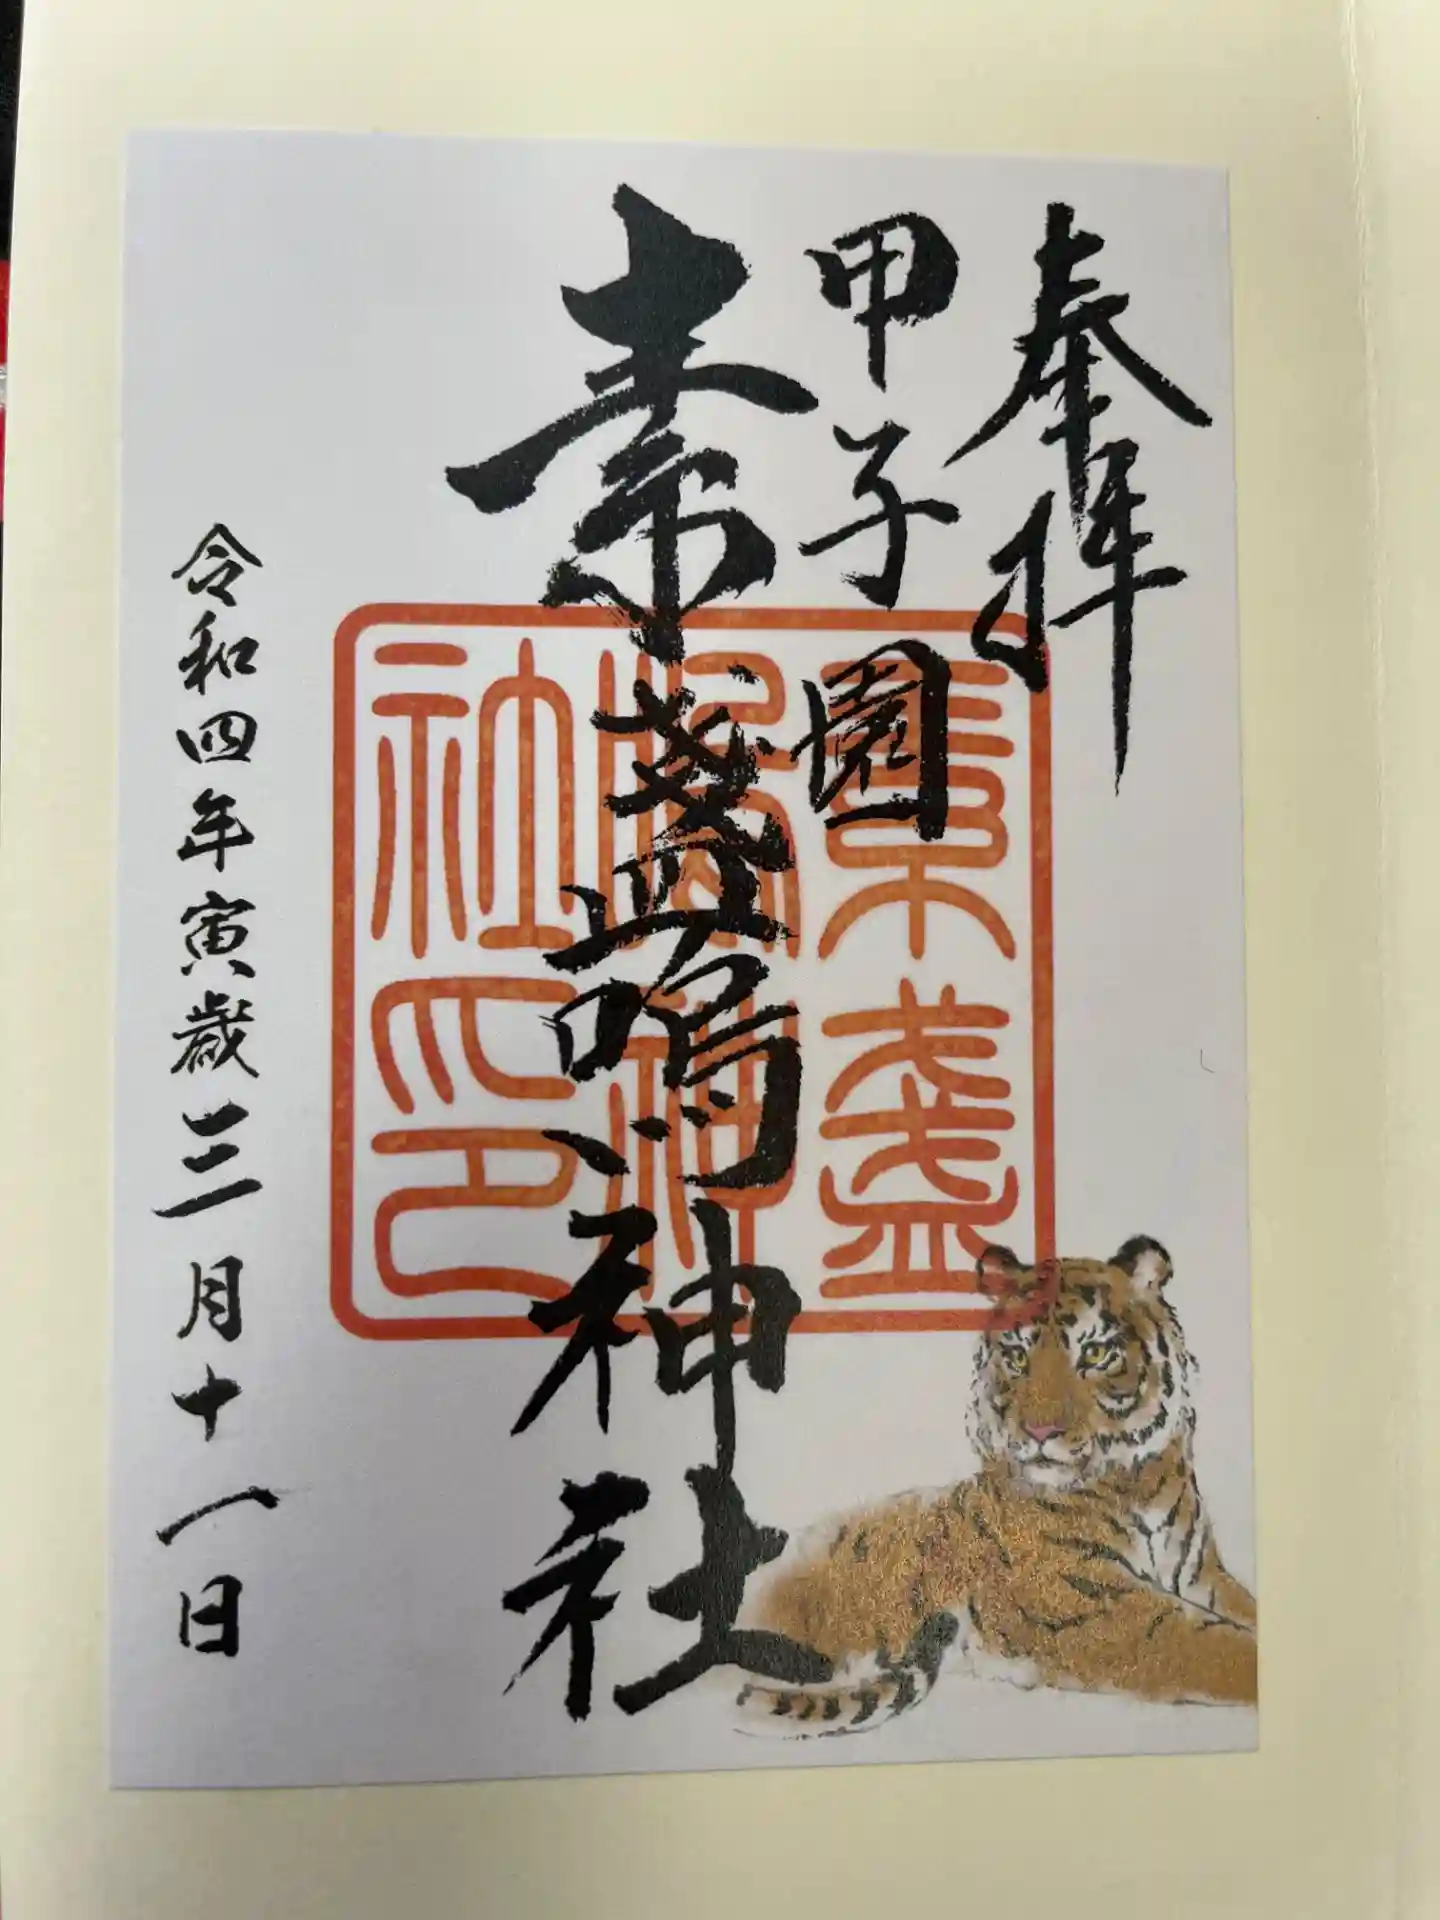 奉拝
甲子園
素盞嗚神社
素盞
嗚神
社印
令和四年寅歳三月十一日